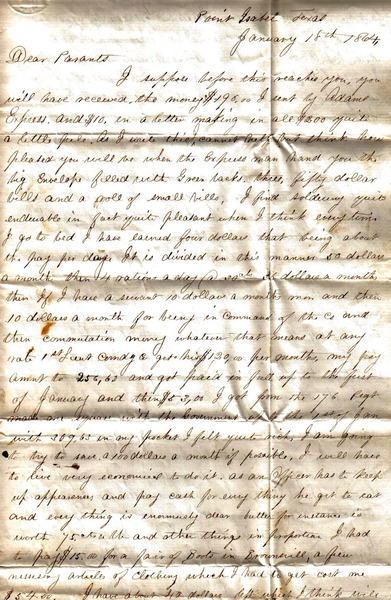 Point Isabel Texas
January 18th 1864
Dear Parants
I suppose before this reaches you, you
will have received the money $190,00 I sent by Adams
Express. And $10, in a letter making in all $200 quite
a little pile. As I write this, cannot but think how
pleased you will be when the Express man hand you the
big Envelope filled with Green backs. three, fifty dollar
bills and a roll of small bills. I find soldiering quite
endurable in fact quite pleasant when I think every time
I go to bed I have earned four dollars that being about
the pay per day. It is divided in this manner 50 dollars
a month then 4 rations a day @ 30ct 36 dollars a month
then if I have a servant 10 dollars a month more and then
10 dollars a month for being in command of the Co and
then commutation money whatever that means at any
rate 1st Lieut Comdg Co gets his $120,00 per months. my pay
amnt to 256,63 and got paid in full up to the first
of January and then $53,00 I got from the 176 Regt
made me square with the Government up to the 1st of Jan
with 309,63 in my pocket I felt quite rich, I am going
to try to save a 100 dollars a month if possible, I will have
to live very economical to do it. as an Officer has to keep
up appearances and pay cash for every thing he get to eat
and every thing is enormously dear butter for instance is
worth 75cts a lb and other things in proportion I had
to pay $15.00 for a pair of Boots in Brownsvill, a few
nessesary articles of clothing which I had to get cost me
$54.00. I have about 40 dollars left which I think will